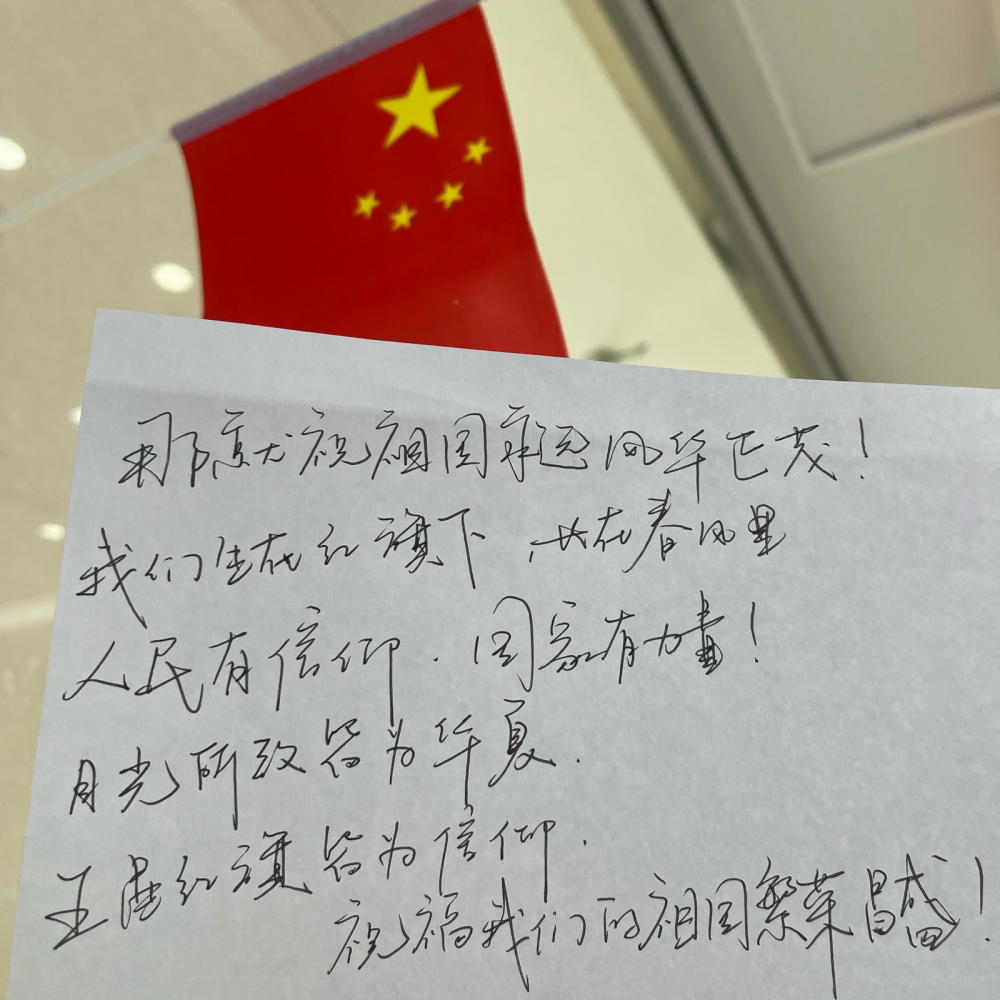 那就祝祖国永远风华正茂！
我们生在红旗下，长在春风里
人民有信仰．国家有力量！
目光所致皆为华夏．
五星红旗皆为信仰．
祝福我们的祖国繁荣昌盛！